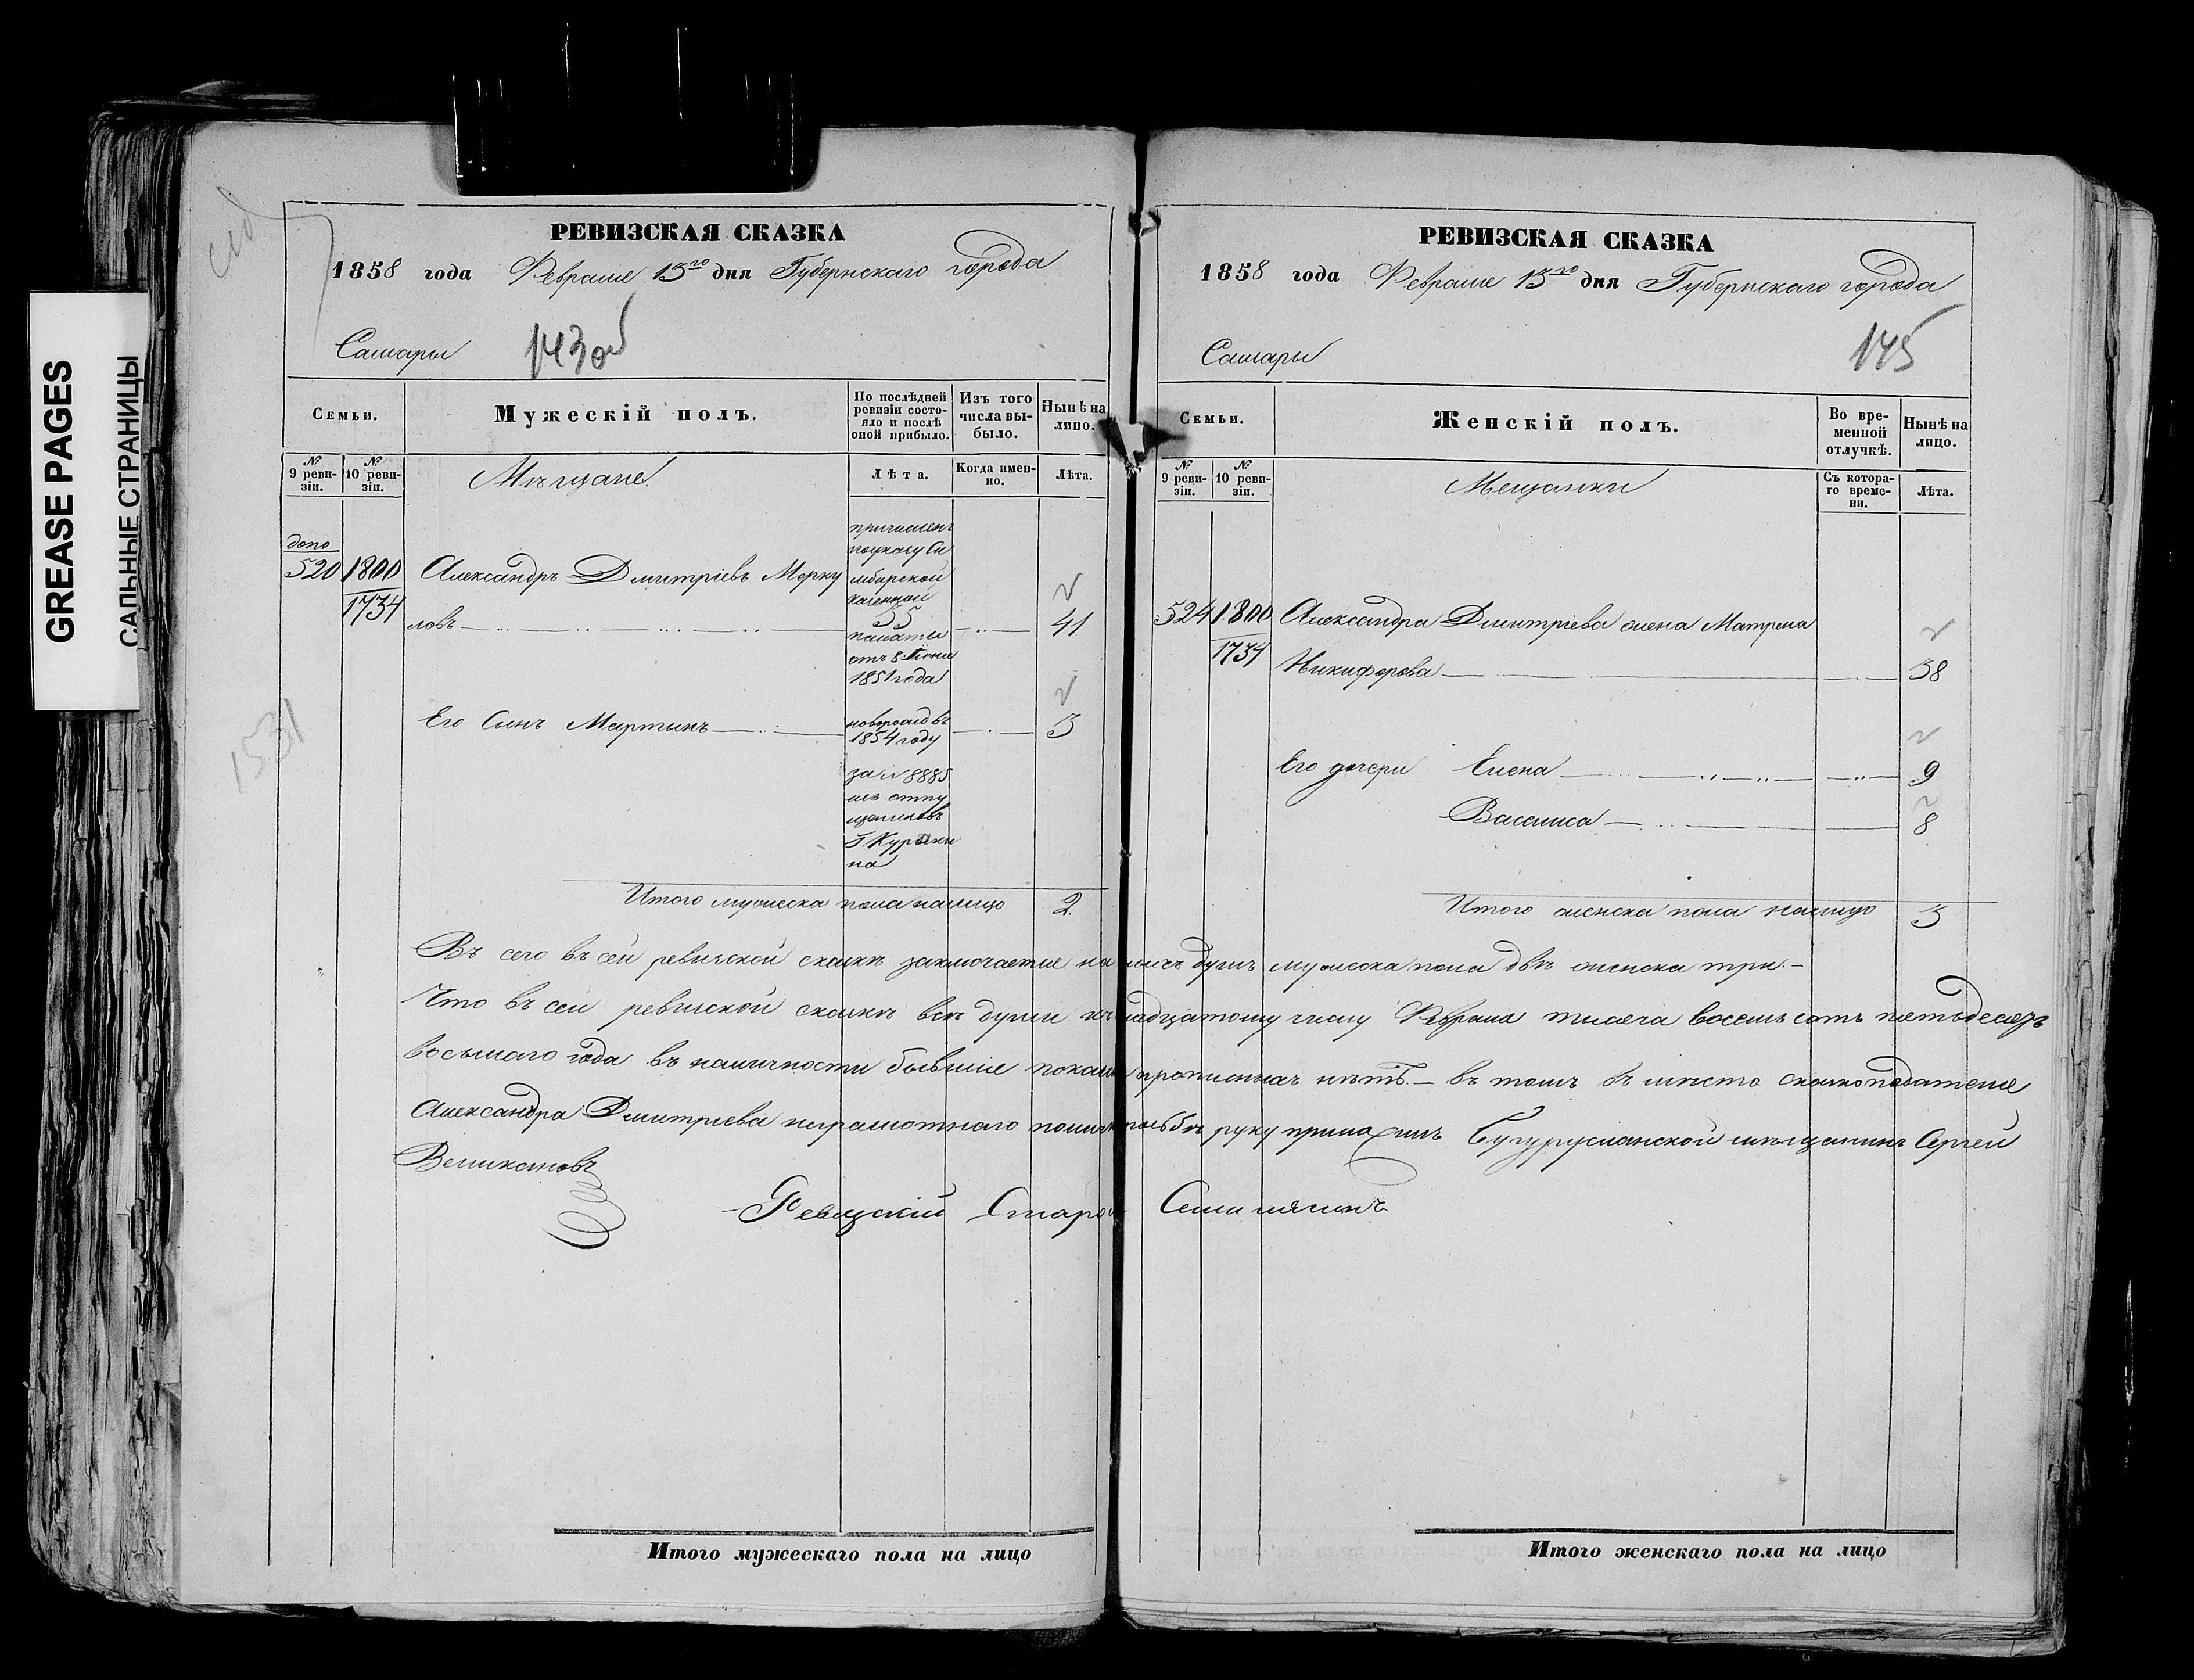 GREASE PAGES
САЛЬНЫЕ СТРАНИЦЫ
РЕВИЗСКАЯ СКАЗКА
1858 года Февраля 15го дня Губернскаго города
Самары 143об
Семьи.
Мужескій полъ.
По послѣдней ревизіи состояло и послѣ оной прибыло.
Изъ того числа выбыло.
Нынѣ на лицо.
№ 9 ревизіи.
№ 10 ревизіи.
Мѣщане
Лѣта.
Когда именно.
Лѣта.
допо
520 1800 Александръ Дмитріевъ Мерку
1734 ловъ 41
причисленъ
по указу Си
мбирской
казенной
35
палаты
отъ 8 Июня
1851 года
Его Сынъ Мартынъ 3
новорожд въ
1854 году
за № 8885
изъ отпу
щенниковъ
Г. Куроки
на
Итого мужеска пола налицо 2
РЕВИЗСКАЯ СКАЗКА
1858 года Февраля 15го дня Губернскаго города
Самары 145
Семьи.
Женскій полъ.
Во временной отлучкѣ.
Нынѣ на лицо.
№ 9 ревизіи.
№ 10 ревизіи.
Мещанки
Съ котораго времени.
Лѣта.
524 1800 Александра Дмитріева жена Матрена
1734 Никифорова 38
Его дочери Елена 9
Василиса 8
Итого женска пола налицо 3
В сего въ сей ревизской сказкѣ заключается на лицъ душъ мужеска пола двѣ женска три.
Что въ сей ревизской сказкѣ всѣ души надцатому числу Февраля тысяча восемь сотъ пятьдесятъ
восьмаго года въ наличности бывшие показа прописныхъ нѣтъ.— въ томъ въ мѣсто сказкоподателя
Александра Дмитріева неграмотнаго просьбѣ руку приложилъ Бугурусланской мѣщанинъ Сергей
Великановъ
Ревизскій Старо
Итого мужескаго пола на лицо
Итого женскаго пола на лицо